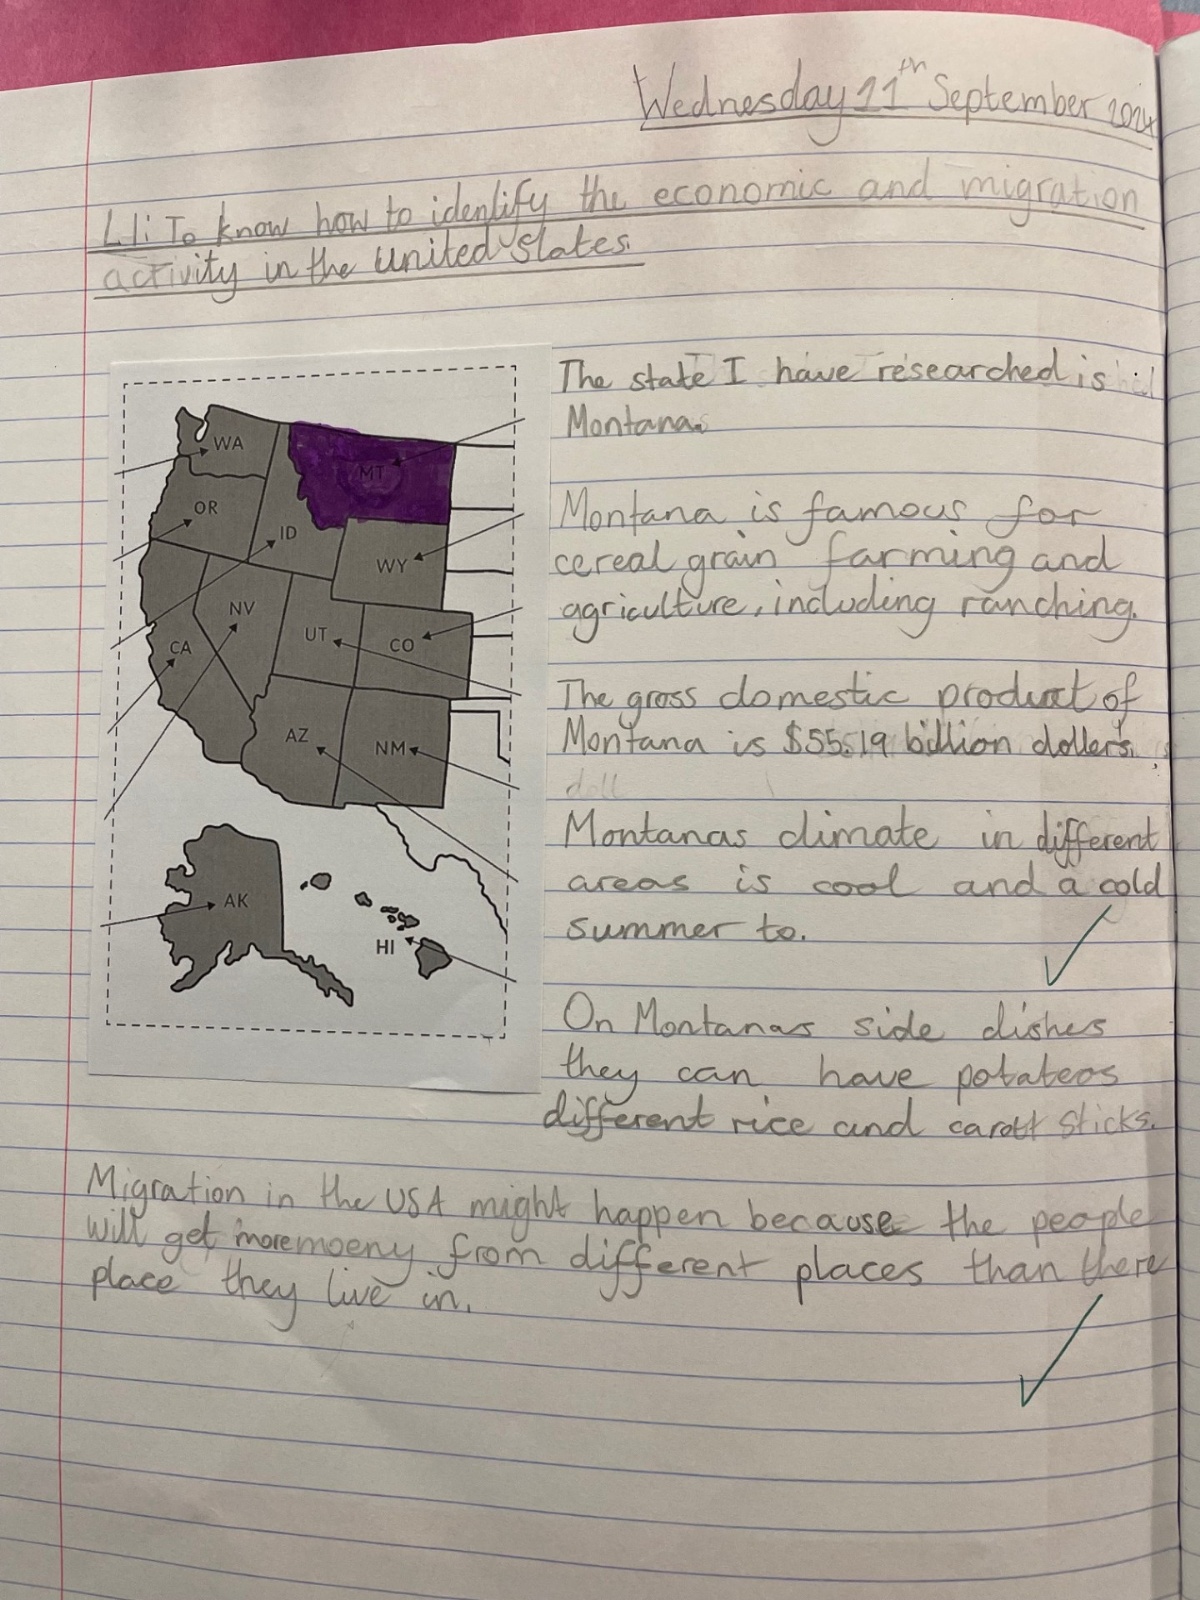 Wednesday 11th September 2024
L.I: To know how to identify the economic and migration
activity in the united States.
The state I have researched is
Montana.
Montana is famous for
cereal grain farming and
agriculture, including ranching.
The gross domestic product of
Montana is $55.19 billion dollers.
doll
Montanas climate in different
areas is cool and a cold
summer to.
On Montanas side dishes
they can have potateos
different rice and carott sticks.
Migration in the USA might happen because the people
will get more moeny from different places than there
place they live in.
WA
MT
OR
ID
WY
NV
UT
CO
CA
AZ
NM
AK
HI